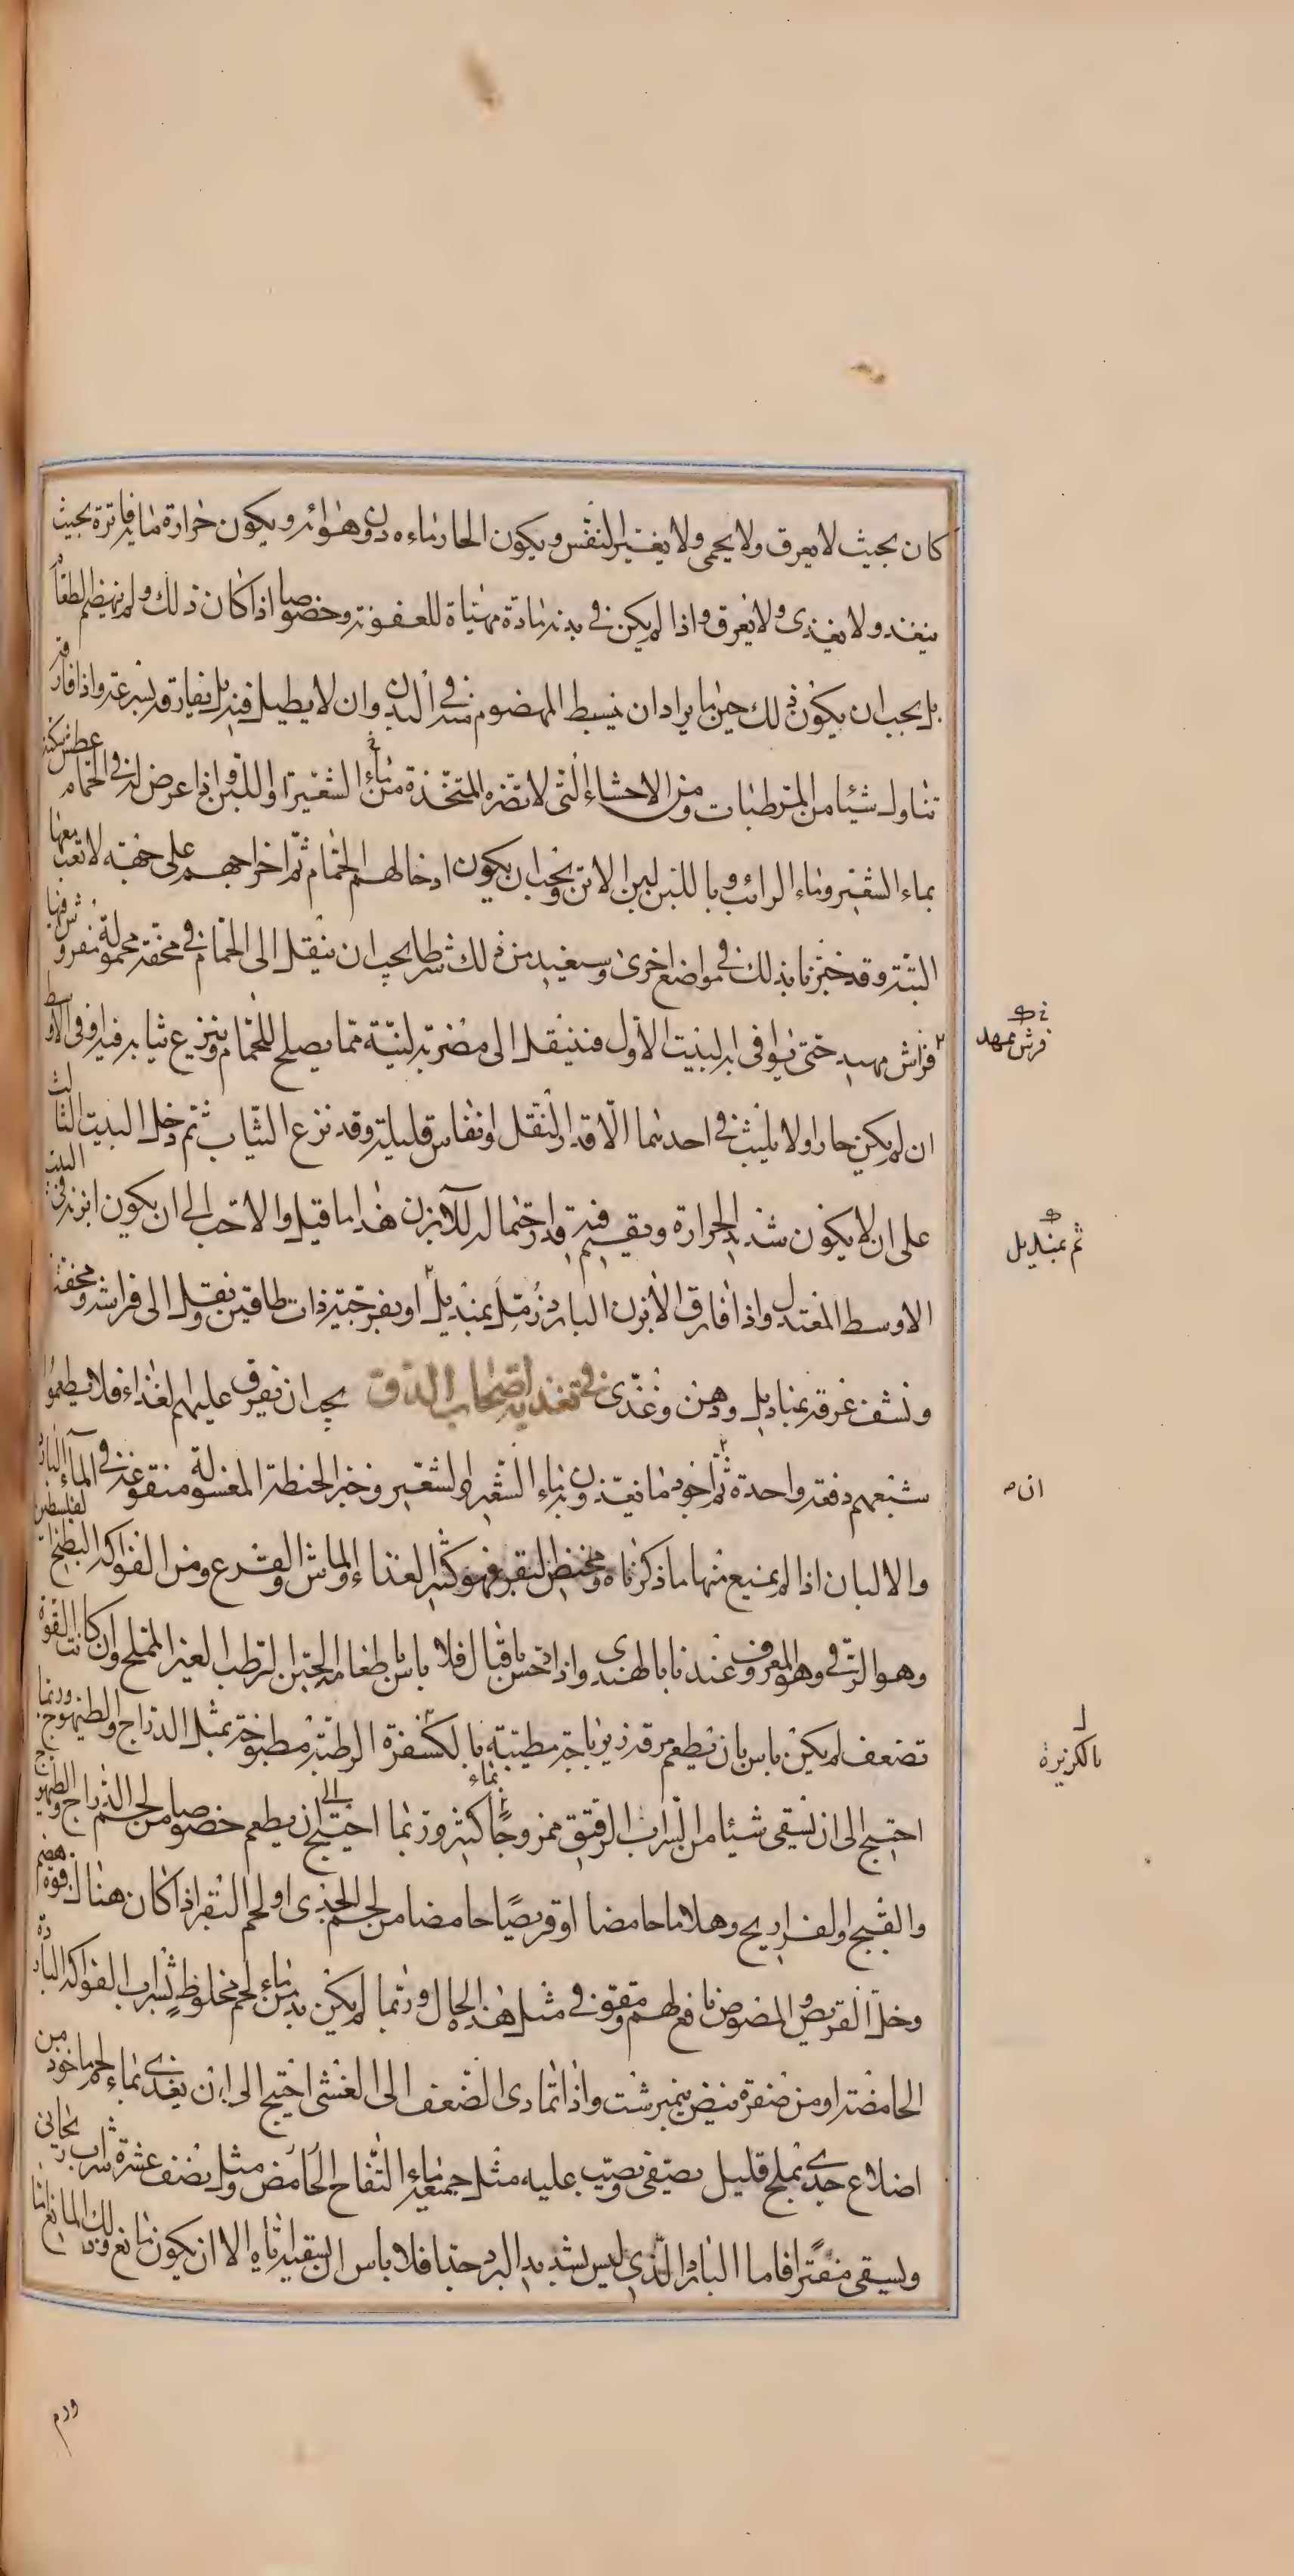 كان بحيث لا يعرق ولا يحمى ولا يغير النفس ويكون الحار ماءه دون هوائه ويكون حرارة مائه فاترة بحيث
ينفد ولا يغذى ولا يعرق واذا لم يكن فى بدنه مادة مهياة للعفونة وخصوصا اذا كان ذلك ولم ينهضم الطعام
بل يجب ان يكون ذلك حين ما يراد ان يبسط المهضوم منه فى البدن وان لا يطيل فيه بل يفارقه بسرعة واذا فارقه
تناول شيئا من المرطبات ومن الاحشاء التى لا تضره المتخذة من ماء الشعير او اللبن واذا عرض له فى الحمام عطش سكنه
بماء الشعير وماء الرائب وباللبن لبن الاتن ويجب ان يكون ادخالهم الحمام ثم اخراجهم على جهة لا تعب معها
البتة وقد خبرنا بذلك فى مواضع اخرى وسنعيد من ذلك شرطا يجب ان ينقل الى الحمام فى محفة محمولة مفروش فيها
فراش مهيد حتى يوافى به البيت الاول فينقل الى مضربة لينة مما يصلح للحمام وينزع ثيابه فيه او فى الاوسط
ان لم يكن حارا ولا يلبث فى احدهما الا قدر التنقل او نفاس قليلة وقد نزع الثياب ثم دخل البيت الثالث
على ان لا يكون شديد الحرارة ويقيم فيه قدر احتماله للآبزن هذا ما قيل والاحب الى ان يكون ابزنه فى البيت
الاوسط المعتدل واذا فارق الابزن البارد زمل بمنديل او بفرجية ذات طاقين ونقل الى فراشه ومحفته
ونشف عرقه بمناديل ودهن وغذى فى تغذية اصحاب الدق يجب ان يفرق عليهم الغذاء فلا يطعموا
شبعهم دفعة واحدة ثم اجود ما يغذون به ماء الشعير والشعير وخبز الحنطة المغسولة منقوعة فى الماء البارد
والالبان اذا لم يمنع منها ما ذكرناه ومخيض البقر فهو كثير الغذاء والماش والقرع ومن الفواكه البطيخ الفلسطين
وهو الرقى وهو المعروف عندنا بالهندى واذا احس باقبال فلا باس باطعامه الجبن الرطب الغير المملح وان كانت القوة
تضعف لم يكن باس بان يطعم مرقة زيرباجة مطيبة بالكسفرة الرطبة مطبوخة بمثل الدراج والطيهوج وربما
احتيج الى ان يسقى شيئا من الشراب الرقيق ممزوجا بماء كثير وربما احتيج الى ان يطعم خصوصا من لحم الدراج والطيهوج
والقبج او الفراريج وهلاما حامضا او قريصا حامضا من لحم الجدى او لحم البقر اذا كان هناك قوة هضم
وخل القريص والمصوص نافع لهم ومقو فى مثل هذه الحال وربما لم يكن بد من ماء لحم مخلوط بشراب الفواكه الباردة
الحامضة او من صفرة بيض نيمبرشت واذا تمادى الضعف الى الغشى احتيج الى ان يغذى بماء لحم ماخوذ من
اضلاع جدى بملح قليل يصفى ويصب عليه مثل جميعه ماء التفاح الحامض ومثل نصف عشره شراب ريحانى
ويسقى مفترا فاما البارد الذى ليس بشديد البرد جدا فلا باس ان يسقيه اياه الا ان يكون مانع وذلك المانع اما
فرش ممهد
ثم بمنديل
ان
بالكزبرة
ورم